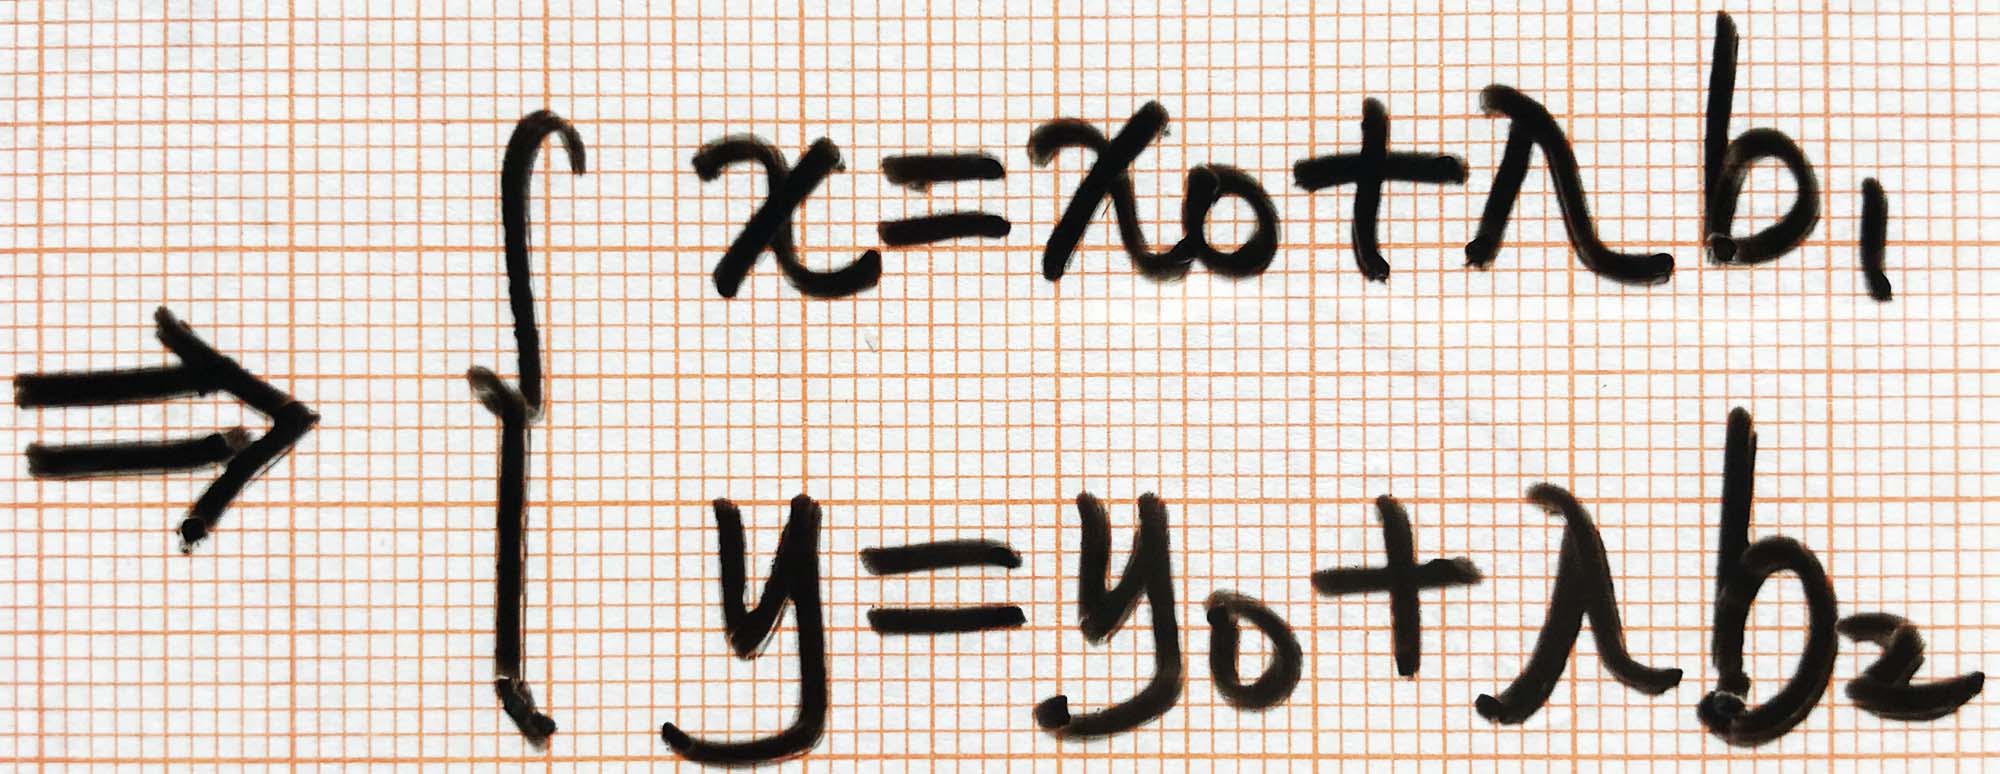 ⇒ { x = x₀ + λ b₁
y = y₀ + λ b₂